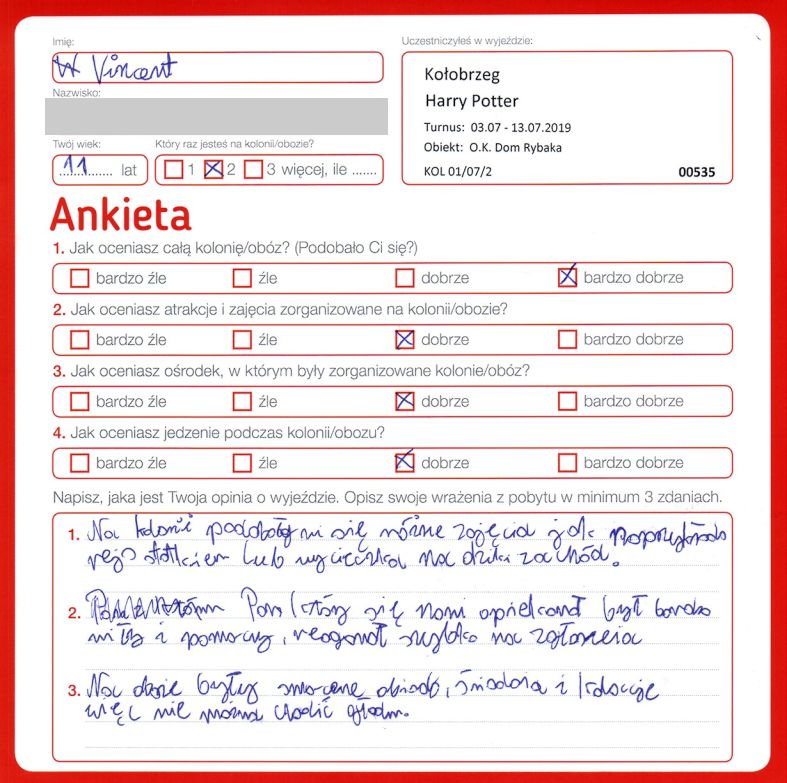 Imię:
Uczestniczyłeś w wyjeździe:
Vincent
Kołobrzeg
Nazwisko:
Harry Potter
Turnus: 03.07 - 13.07.2019
Twój wiek:
Który raz jesteś na kolonii/obozie?
Obiekt: O.K. Dom Rybaka
11 lat
1 2 3 więcej, ile .......
KOL 01/07/2
00535
Ankieta
1. Jak oceniasz całą kolonię/obóz? (Podobało Ci się?)
bardzo źle źle dobrze bardzo dobrze
2. Jak oceniasz atrakcje i zajęcia zorganizowane na kolonii/obozie?
bardzo źle źle dobrze bardzo dobrze
3. Jak oceniasz ośrodek, w którym były zorganizowane kolonie/obóz?
bardzo źle źle dobrze bardzo dobrze
4. Jak oceniasz jedzenie podczas kolonii/obozu?
bardzo źle źle dobrze bardzo dobrze
Napisz, jaka jest Twoja opinia o wyjeździe. Opisz swoje wrażenia z pobytu w minimum 3 zdaniach.
1. Na koloni podobały mi się różne zajęcia jak
rejs statkiem lub wycieczka na dziki zachód.
2. Pan który się nami opiekował był bardzo
miły i pomocny, reagował szybko na zgłoszenia
3. Na dole były smaczne obiady, śniadania i kolacje
więc nie można chodić głodm.